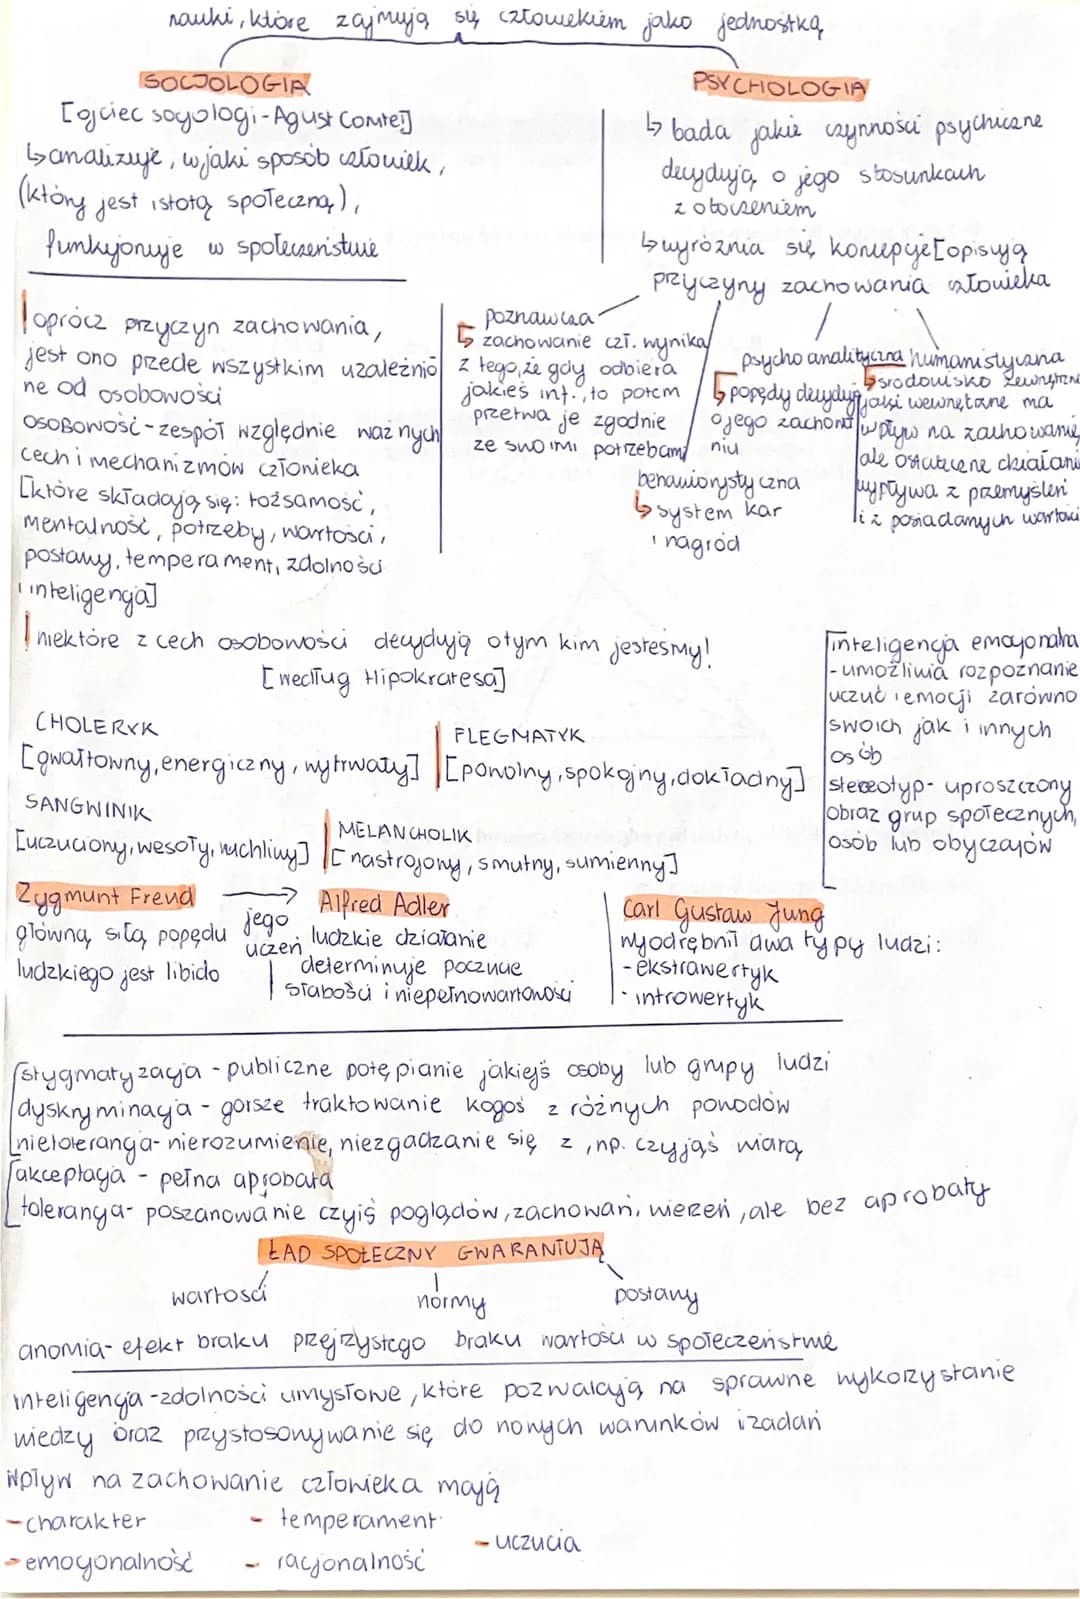 nauki, które zajmują się człowiekiem jako jednostką
SOCJOLOGIA
[ojciec socjologi - Agust Comte]
↳ analizuje, w jaki sposób człowiek,
(który jest istotą społeczną),
funkcjonuje w społeczeństwie
PSYCHOLOGIA
↳ bada jakie czynności psychiczne
decydują o jego stosunkach
z otoczeniem
↳ wyróżnia się koncepcje [opisują
przyczyny zachowania człowieka
poznawcza
↳ zachowanie czł. wynika
z tego, że gdy odbiera
jakieś inf., to potem
przetwa je zgodnie
ze swoimi potrzebami
behawiorystyczna
↳ system kar
i nagród
psychoanalityczna
↳ popędy decydują
o jego zachowa
niu
humanistyczna
↳ środowisko zewnętrzne
jaki wewnętrzne ma
wpływ na zachowanie,
ale ostateczne działanie
wypływa z przemyśleń
i z posiadanych wartości
! oprócz przyczyn zachowania,
jest ono przede wszystkim uzależnio
ne od osobowości
OSOBOWOŚĆ - zespół względnie ważnych
cech i mechanizmów człowieka
[które składają się: tożsamość,
mentalność, potrzeby, wartości,
postawy, temperament, zdolności
i inteligencja]
! niektóre z cech osobowości decydują o tym kim jesteśmy!
[według Hipokratesa]
CHOLERYK
[gwałtowny, energiczny, wytrwały]
FLEGMATYK
[powolny, spokojny, dokładny]
SANGWINIK
[uczuciowy, wesoły, ruchliwy]
MELANCHOLIK
[nastrojowy, smutny, sumienny]
inteligencja emocjonalna
- umożliwia rozpoznanie
uczuć i emocji zarówno
swoich jak i innych
osób
stereotyp - uproszczony
obraz grup społecznych,
osób lub obyczajów
Zygmunt Freud
główną siłą popędu
ludzkiego jest libido
→
jego
uczeń
Alfred Adler
ludzkie działanie
determinuje poczucie
słabości i niepełnowartowości
Carl Gustaw Jung
wyodrębnił dwa typy ludzi:
- ekstrawertyk
- introwertyk
stygmatyzacja - publiczne potępianie jakiejś osoby lub grupy ludzi
dyskryminacja - gorsze traktowanie kogoś z różnych powodów
nietolerancja - nierozumienie, niezgadzanie się z, np. czyjąś wiarą
akceptacja - pełna aprobata
tolerancja - poszanowanie czyiś poglądów, zachowań, wierzeń, ale bez aprobaty
ŁAD SPOŁECZNY GWARANTUJĄ
wartości
normy
postawy
anomia - efekt braku przejrzystego braku wartości w społeczeństwie
inteligencja - zdolności umysłowe, które pozwalają na sprawne wykorzystanie
wiedzy oraz przystosowywanie się do nowych warunków i zadań
Wpływ na zachowanie człowieka mają
- charakter
- temperament
- uczucia
- emocjonalność
- racjonalność